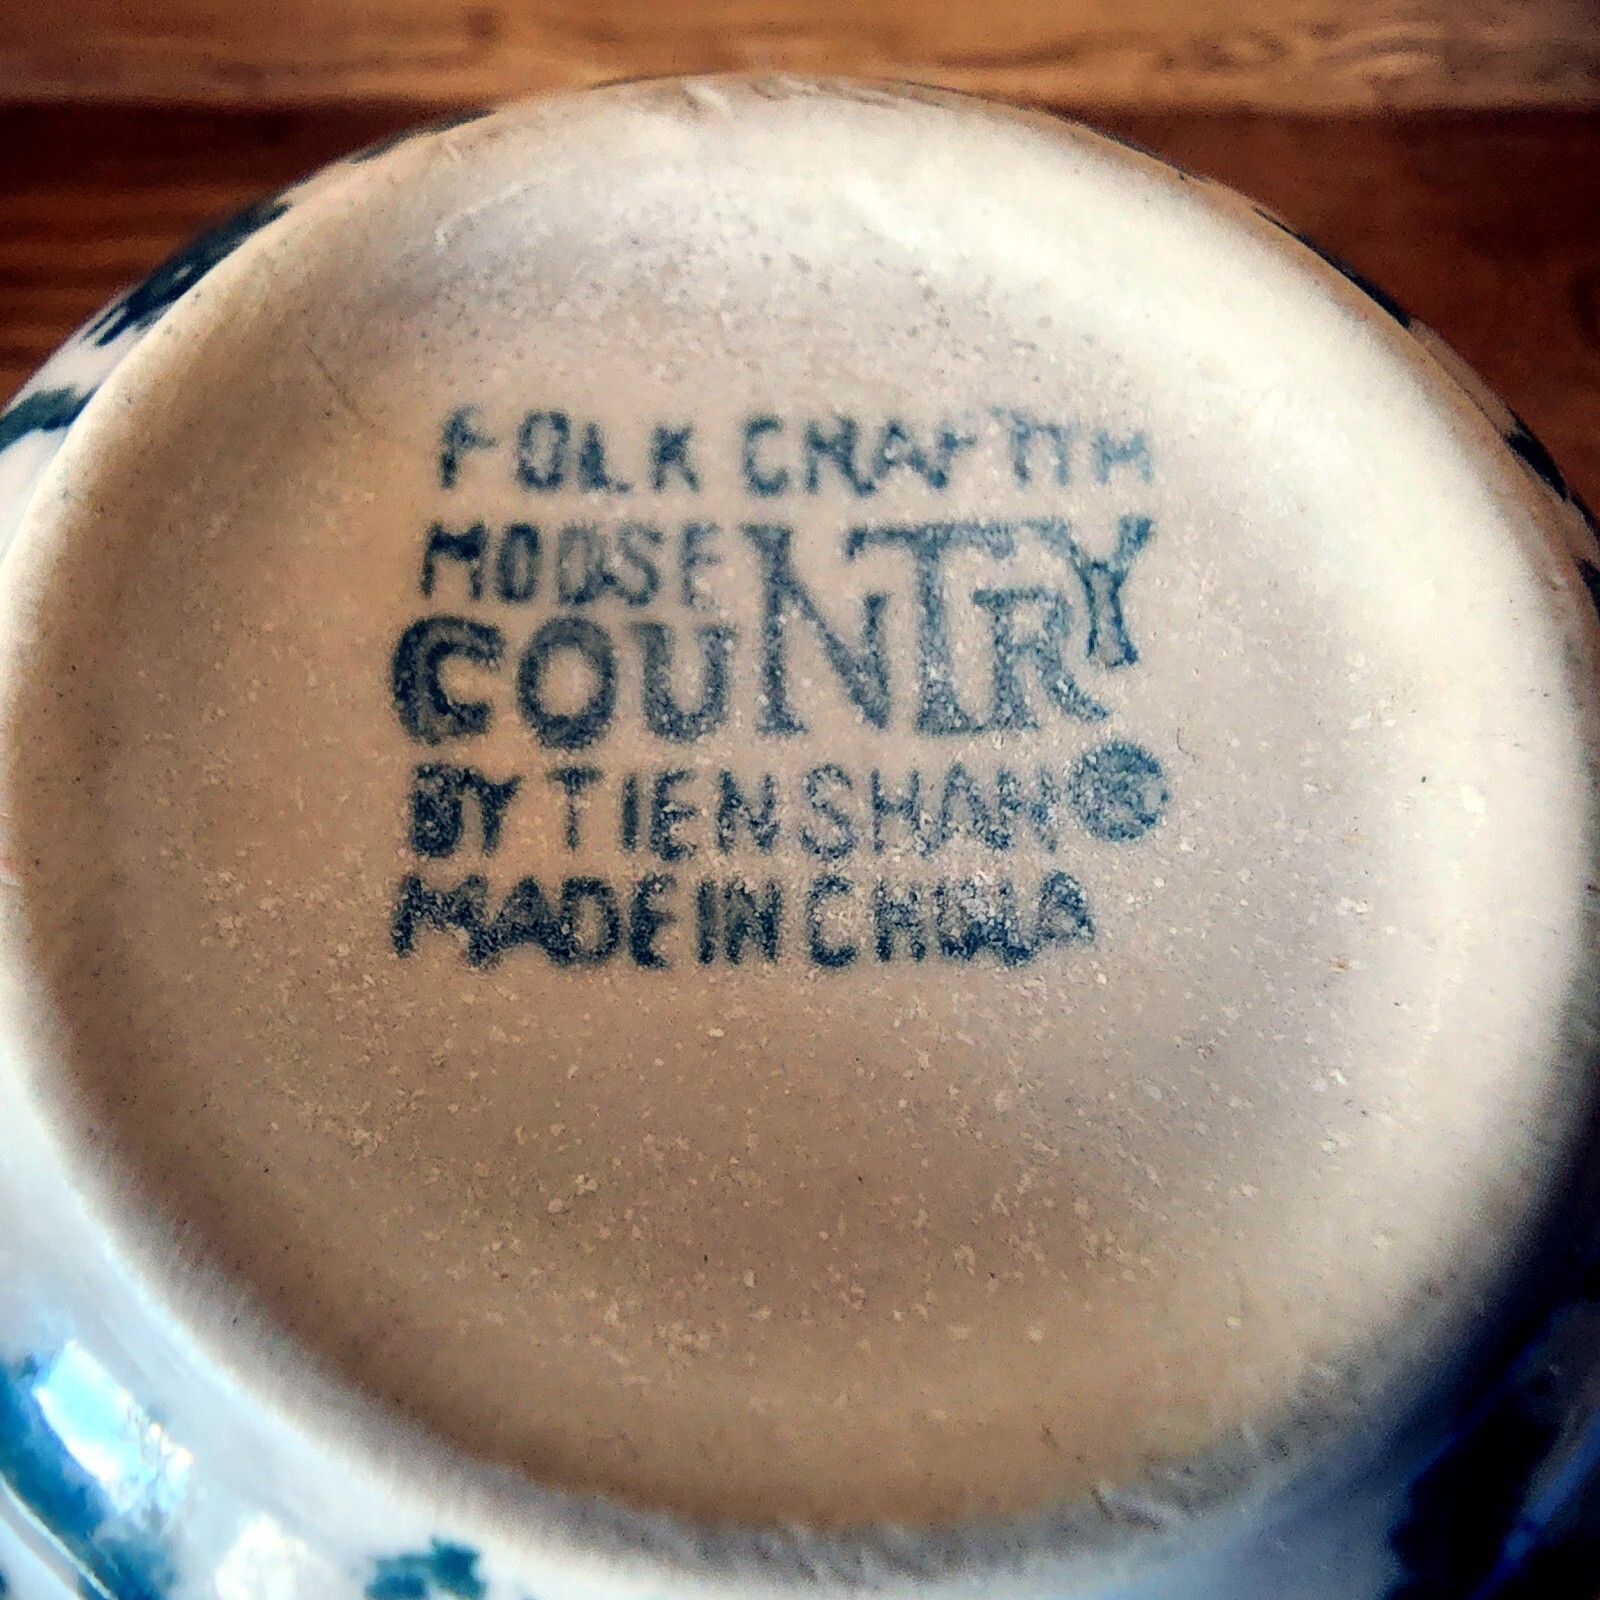 FOLK CRAFT TM
MOOSE
COUNTRY
BY TIENSHAN ®
MADE IN CHINA